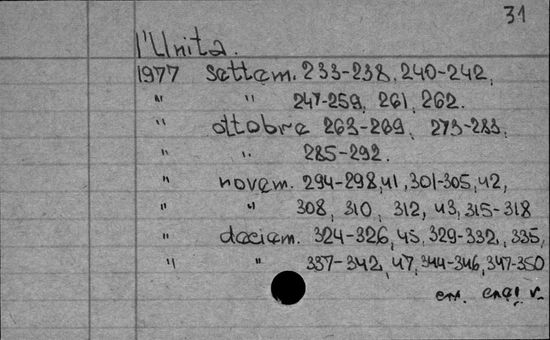 31
l'Unita.
1977 settem. 233-238, 240-242,
" " 247-259, 261, 262.
" ottobre 263-269, 273-283,
" " 285-292.
" novem. 294-298, 41, 301-305, 42,
" " 308, 310, 312, 43, 315-318
" deciem. 324-326, 45, 329-332, 335,
" " 337-342, 47, 344-346, 347-350